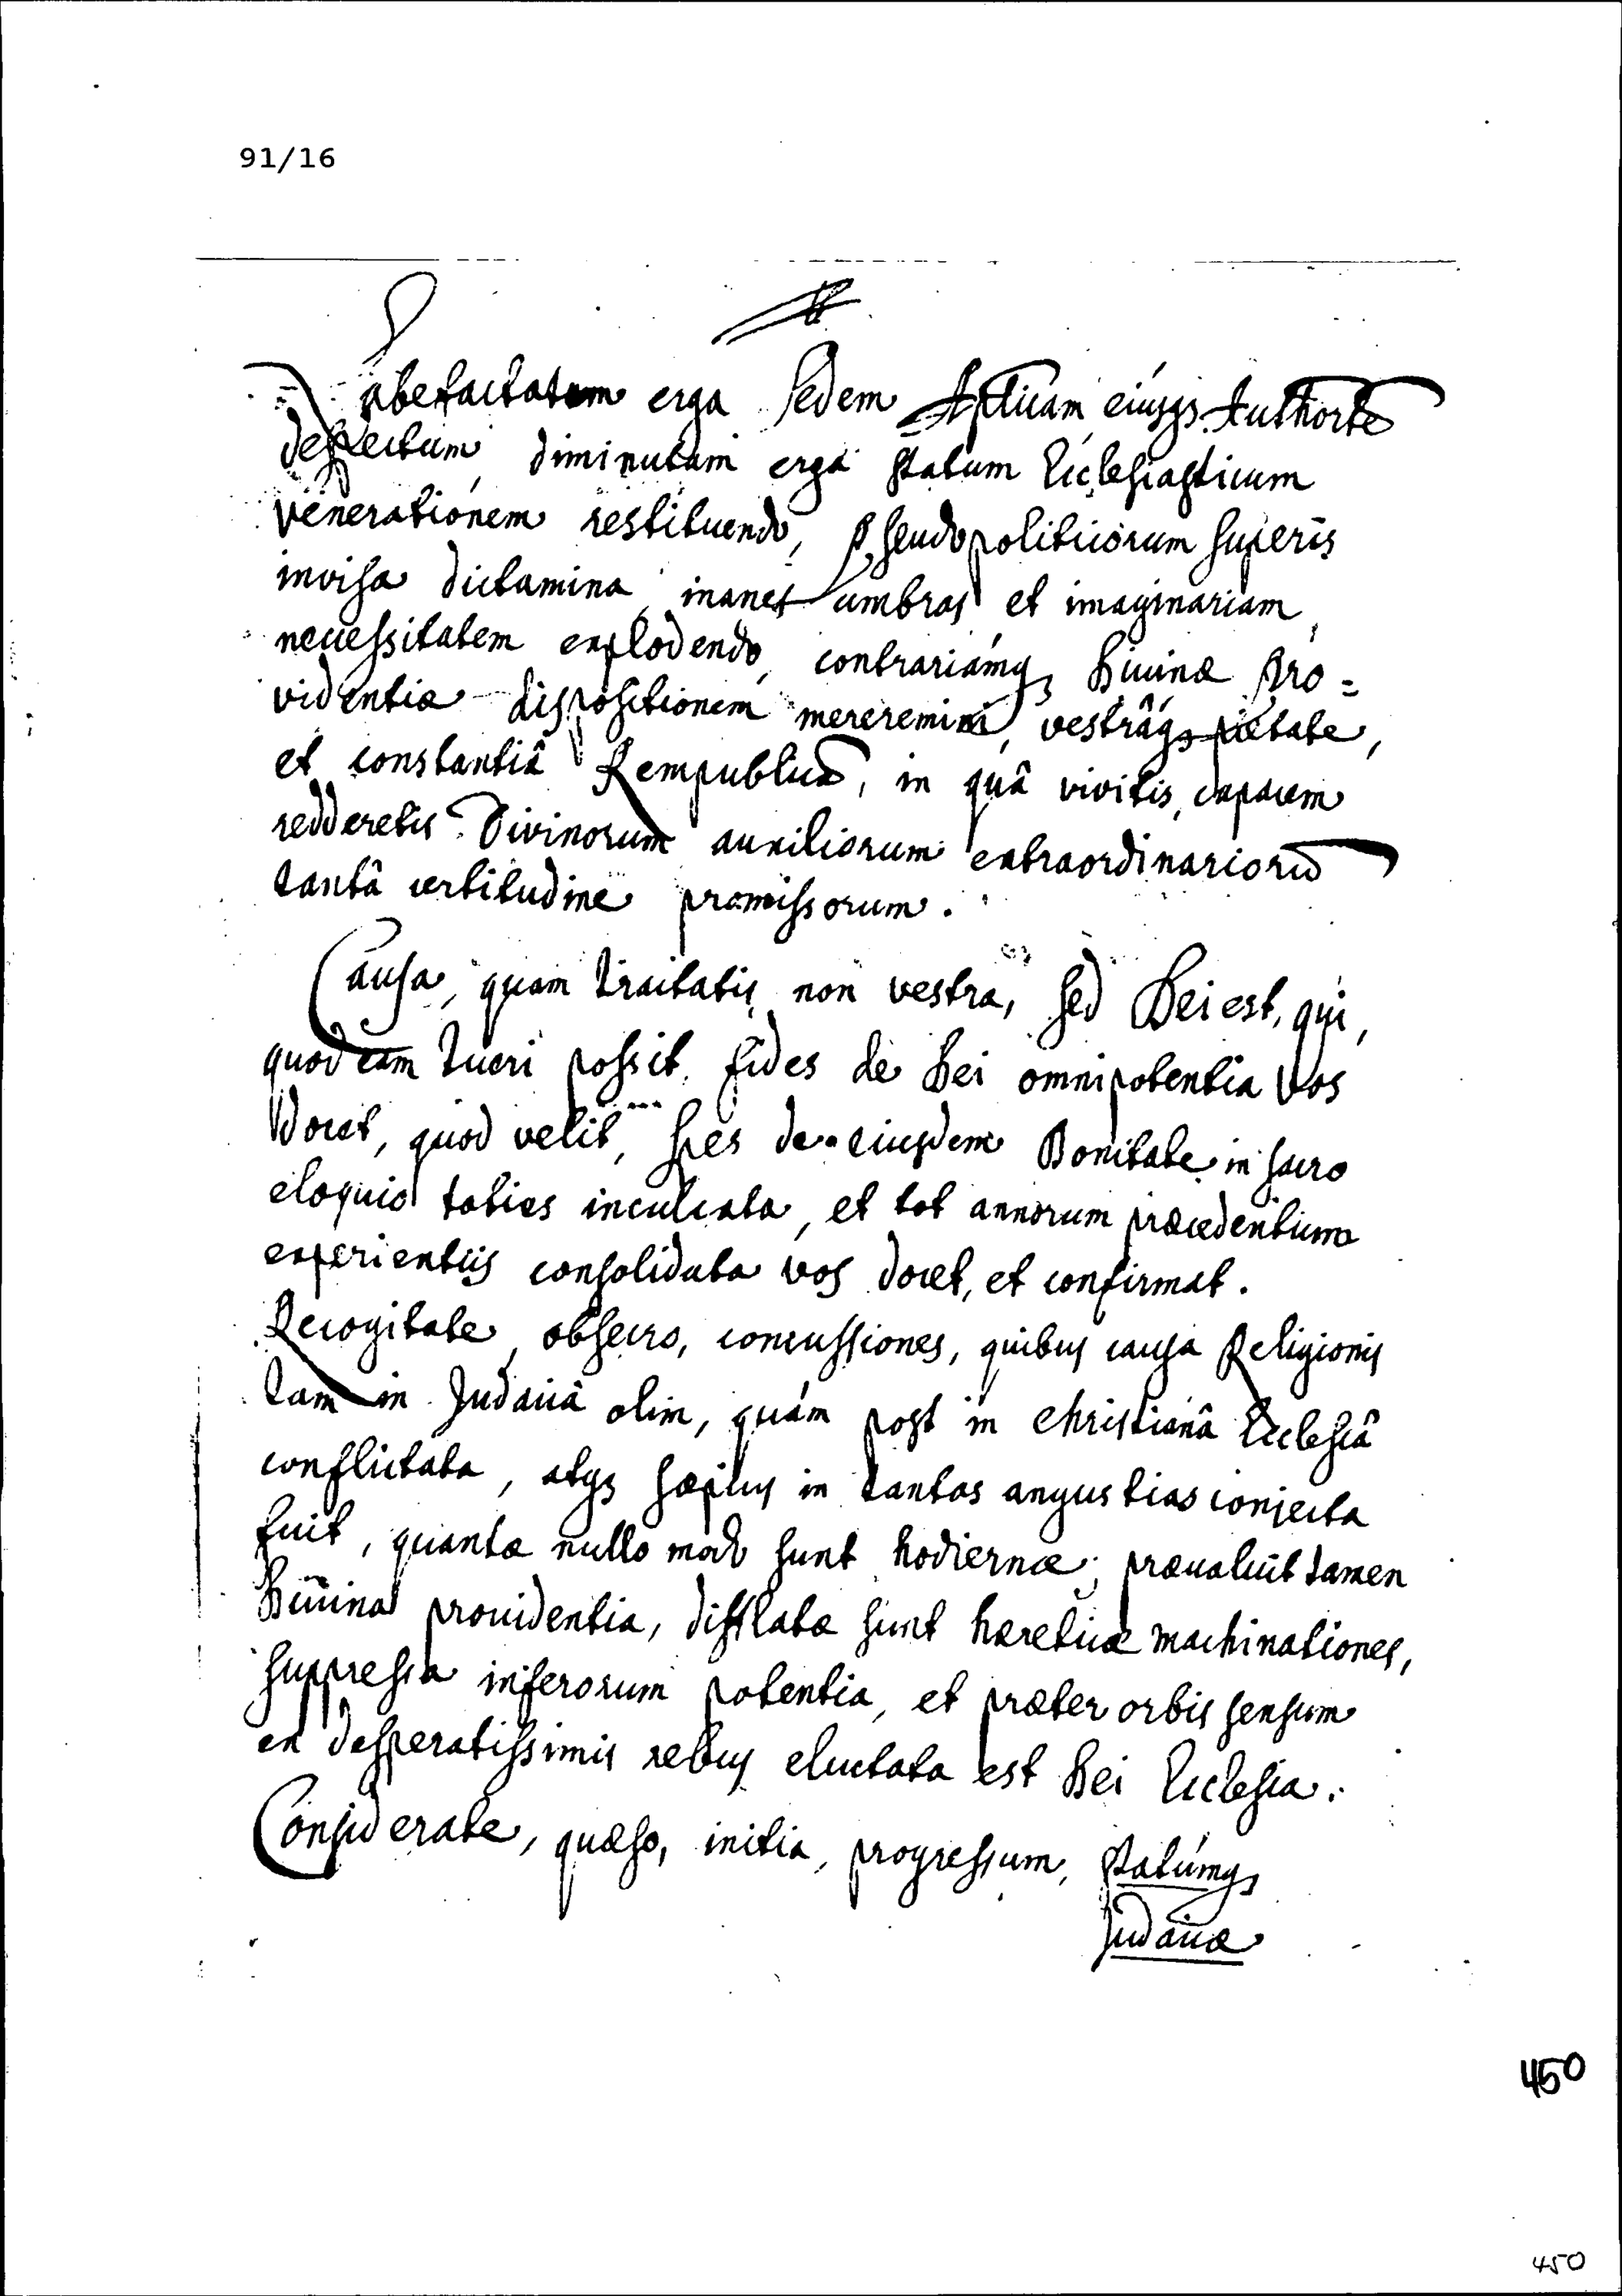 91/16
labefactatam erga Sedem Aplicam eiusq; Authorte
despectum, diminutam erga statum Ecclesiasticum
venerationem restituendo, Pseudopoliticorum superis
invisa dictamina, inanes umbras et imaginariam
necessitatem explodendo, contrariámq; Divinæ Pro=
videntiæ dispositionem mereremini, vestrâq; pietate,
et constantiâ Rempublicã, in quâ vivitis, capacem
redderetis Divinorum auxiliorum extraordinariorũ
tantâ certitudine promissorum.
Causa, quam tractatis, non vestra, sed Dei est, qui,
quod eam tueri possit, fides de Dei omnipotentia vos
docet, quod velit, spes de eiusdem Bonitate in sacro
eloquio toties inculcata, et tot annorum præcedentium
experientiis consolidata vos docet, et confirmat.
Recogitate, obsecro, concussiones, quibus causa Religionis
tam in Judaicâ olim, quám post in Christianâ Ecclesiâ
conflictata, atq; sæpius in tantas angustias conjecta
fuit, quantæ nullo modo sunt hodiernæ; prævaluit tamen
Divina providentia, difflatæ sunt hæreticæ machinationes,
suppressa inferorum potentia, et præter orbis sensum
ex desperatissimis rebus eluctata est Dei Ecclesia.
Considerate, quæso, initia, progressum, statúmq;
Judaicæ
450
450